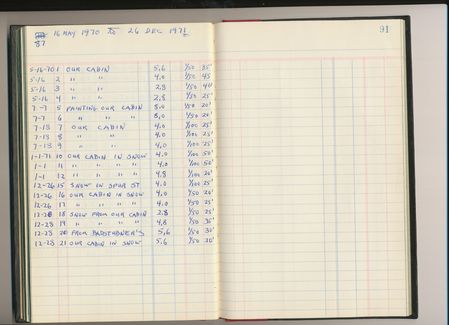 16 MAY 1970 TO 26 DEC 1971
87
91
5-16-70 1 OUR CABIN 5.6 1/50 35'
5-16 2 " " 4.0 1/50 45'
5-16 3 " " 2.8 1/50 40'
5-16 4 " " 2.8 1/50 25'
7-7 5 PAINTING OUR CABIN 8.0 1/50 20'
7-7 6 " " " 8.0 1/50 20'
7-13 7 OUR CABIN 4.0 1/100 25'
7-13 8 " " 4.0 1/100 25'
7-13 9 " " 4.0 1/100 25'
1-1-71 10 OUR CABIN IN SNOW 4.0 1/100 50'
1-1 11 " " " " 4.0 1/100 50'
1-1 12 " " " " 4.8 1/100 20'
12-26 15 SNOW IN SPUR ST. 4.0 1/100 25'
12-26 16 OUR CABIN IN SNOW 4.0 1/50 20'
12-26 17 " " " " 4.0 1/50 25'
12-28 18 SNOW FROM OUR CABIN 2.8 1/50 25'
12-28 19 " " " " 4.8 1/50 30'
12-28 20 FROM 5.6 1/50 30'
12-28 21 OUR CABIN IN SNOW 5.6 1/50 30'